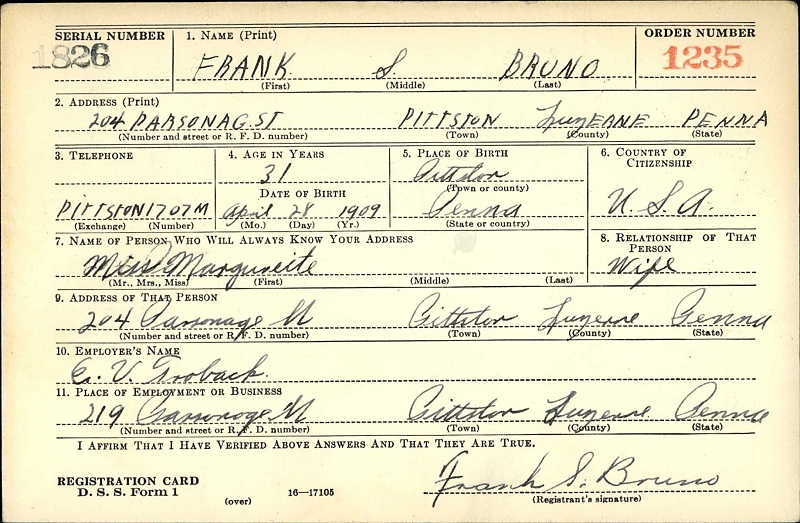 SERIAL NUMBER 1. NAME (Print) ORDER NUMBER
1826 FRANK S. BRUNO 1235
(First) (Middle) (Last)
2. ADDRESS (Print)
204 PARSONAG. ST PITTSTON Luzerne PENNA
(Number and street or R. F. D. number) (Town) (County) (State)
3. TELEPHONE 4. AGE IN YEARS 5. PLACE OF BIRTH 6. COUNTRY OF CITIZENSHIP
31 Pittston
DATE OF BIRTH (Town or county)
PITTSTON 1707M April 28 1909 Penna U. S. A.
(Exchange) (Number) (Mo.) (Day) (Yr.) (State or country)
7. NAME OF PERSON WHO WILL ALWAYS KNOW YOUR ADDRESS 8. RELATIONSHIP OF THAT PERSON
Marguerite Wife
(Mr., Mrs., Miss) (First) (Middle) (Last)
9. ADDRESS OF THAT PERSON
204 Parsonage St Pittston Luzerne Penna
(Number and street or R. F. D. number) (Town) (County) (State)
10. EMPLOYER'S NAME
C. V.
11. PLACE OF EMPLOYMENT OR BUSINESS
219 Parsonage St Pittston Luzerne Penna
(Number and street or R. F. D. number) (Town) (County) (State)
I AFFIRM THAT I HAVE VERIFIED ABOVE ANSWERS AND THAT THEY ARE TRUE.
REGISTRATION CARD Frank S. Bruno
D. S. S. Form 1 (over) 16—17105 (Registrant's signature)